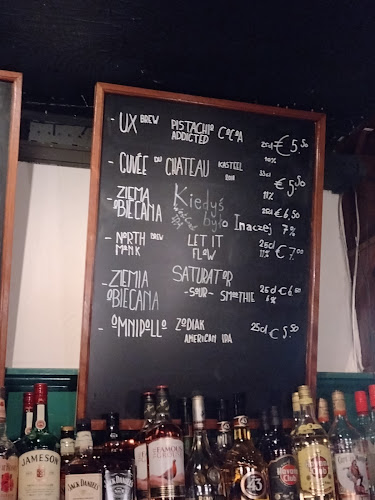 - UX BREW PISTACHIO ADDICTED COCOA 25cl €5.50 10%
- CUVÉE DU CHATEAU KASTEEL 33cl €5.50 11%
- ZIEMA OBIECANA Kiedyś było Inaczej 25cl €6.50 7%
- NORTH BREW MONK LET IT FLOW 25cl €7.00 11%
- ZIEMIA OBIECANA SATURATOR - SOUR - SMOOTHIE 25cl €6.50 6%
- OMNIPOLLO ZODIAK AMERICAN IPA 25cl €5.50
JAMESON
JACK DANIEL'S
JACK DANIEL'S
FAMOUS
43
Havana Club